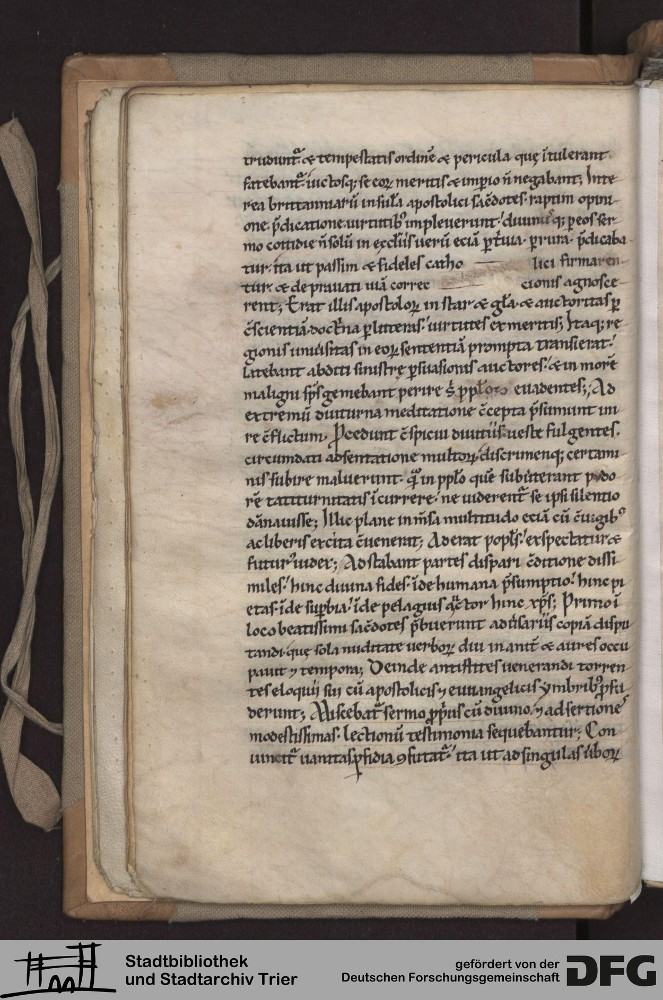 trudunt᷑ & tempestatis ordinē & pericula quę ītulerant
fatebant᷑ uictosq; se eoꝝ meritis & imꝑio n̄ negabant; Inte
rea brittanniarū insulā apostolici sac̄dotes raptim opini
one p̄dicatione uirtutibꝰ impleuerunt; diuinusq; ꝑ eos ser
mo cottidie n̄ solū in ęccl̄iis uerū eciā ꝑ t̓uia ꝑ rura p̄dicaba
tur. ita ut passim & fideles catho lici firmaren
tur. & deprauati uiā correc cionis agnosce
rent; Erat illis apostoloꝝ instar & gl̄a & auctoritas ꝑ
c̄scientiā. doct̓na ꝑ litteras. uirtutes ex meritis; Itaq; re
gionis uniū̓sitas in eoꝝ sententiā prompta transierat.
Latebant abditi sinistrę ꝑsuasionis auctores. & in morē
maligni sp̄s gemebant perire s̄ ppl̄os euadentes; Ad
extremū diuturna meditatione c̄cepta p̄sumunt ini
re c̄flictum. Procedunt c̄spicui diuitiis. ueste fulgentes.
circumdati adsentatione multoꝝ. discrimenq; certami
nis subire maluerunt. quā in pplo quē subūterant pudo
rē tatiturnitatis īcurrere. ne uiderent᷑ se ipsi silentio
dānauisse; Illic plane inm̄sa multitudo eciā cū c̄iugibꝰ
ac liberis excita c̄uenerat; Aderat poplꝰ. exspectatur &
futurꝰ iudex; Adstabant partes dispari c̄ditione dissi
miles. hinc diuina fides. īde humana p̄sumptio. hinc pi
etas. īde suꝑbia. īde pelagius auctor hinc xp̄s; Primo ī
loco beatissimi sac̄dotes p̄buerunt adū̓sariis copiā dispu
tandi. quę sola nuditate uerboꝝ diu inanit̓ & aures occu
pauit ⁊ tempora; Deinde antistites uenerandi torren
tes eloquij sui cū apostolicis ⁊ euuangelicis ymbribꝰ ꝓfu
derunt; Miscebat᷑ sermo ꝓprius cū diuino. ⁊ adsertiones
modestissimas. lectionū testimonia sequebantur; Con
uincit᷑ uanitas ꝑfidia ꝯfutat᷑. ita ut ad singulas ū̓boꝝ
Stadtbibliothek
und Stadtarchiv Trier
gefördert von der
Deutschen Forschungsgemeinschaft
DFG